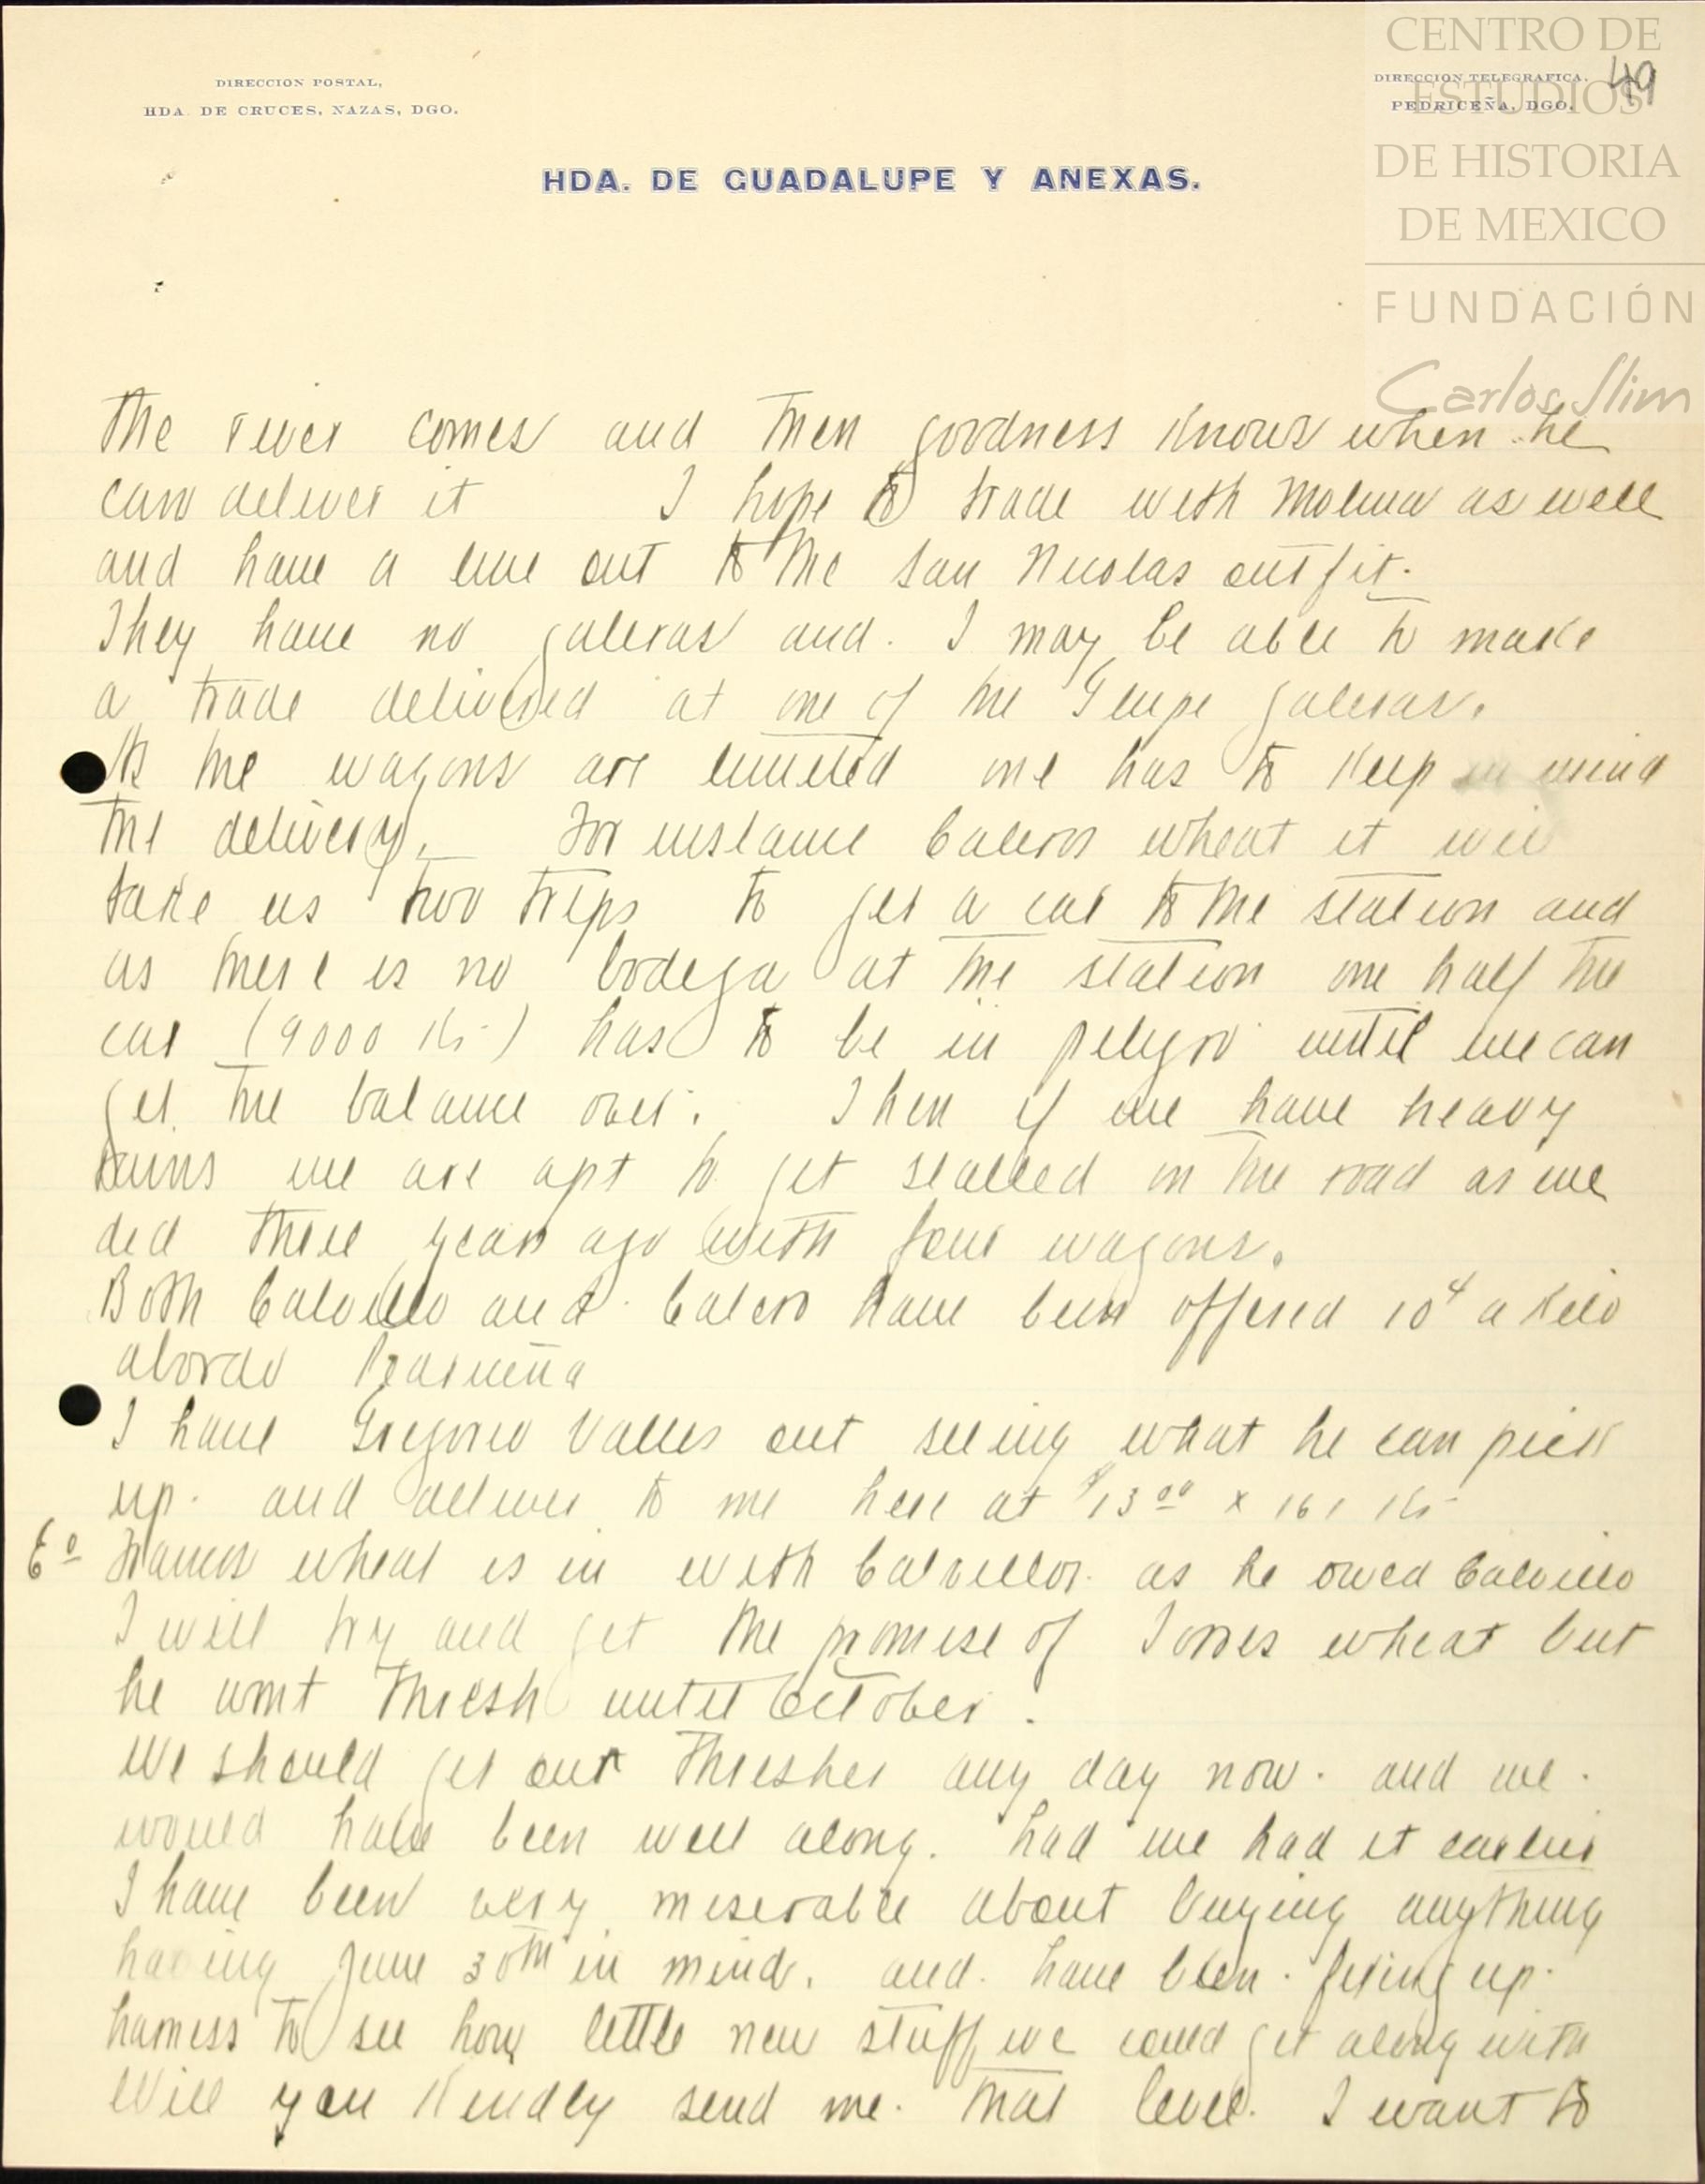 CENTRO DE
ESTUDIOS
DE HISTORIA
DE MEXICO
FUNDACIÓN
Carlos Slim
DIRECCION POSTAL,
HDA. DE CRUCES, NAZAS, DGO.
DIRECCION TELEGRAFICA,
PEDRICEÑA, DGO.
49
HDA. DE GUADALUPE Y ANEXAS.
the river comes and then goodness knows when he
can deliver it I hope to trade with Molina as well
and have a line out to the San Nicolas outfit.
They have no galeras and. I may be able to make
a trade delivered at one of the Glupe galeras.
As the wagons are limited one has to keep in mind
the delivery. For instance Calero wheat it will
take us two trips to get a car to the station and
as there is no bodega at the station one half the
car (9000 Ks) has to be in peligro until we can
get the balance over. Then if we have heavy
rains we are apt to get stalled on the road as we
did three years ago with four wagons.
Both Calvillo and Calero have been offered 10¢ a kilo
abordo Pedriceña
I have Gregorio Valles out seeing what he can pick
up. and deliver to me here at $13.00 x 161 Ks
Eo Framos wheat is in with Calvillos. as he owed Calvillo
I will try and get the promise of Torres wheat but
he wont thresh until October.
We should get our thresher any day now. and we.
would have been well along. had we had it earlier
I have been very miserable about buying anything
having June 30th in mind. and. have been. fixing up.
harness to see how little new stuff we could get along with
Will you kindly send me. that level. I want to